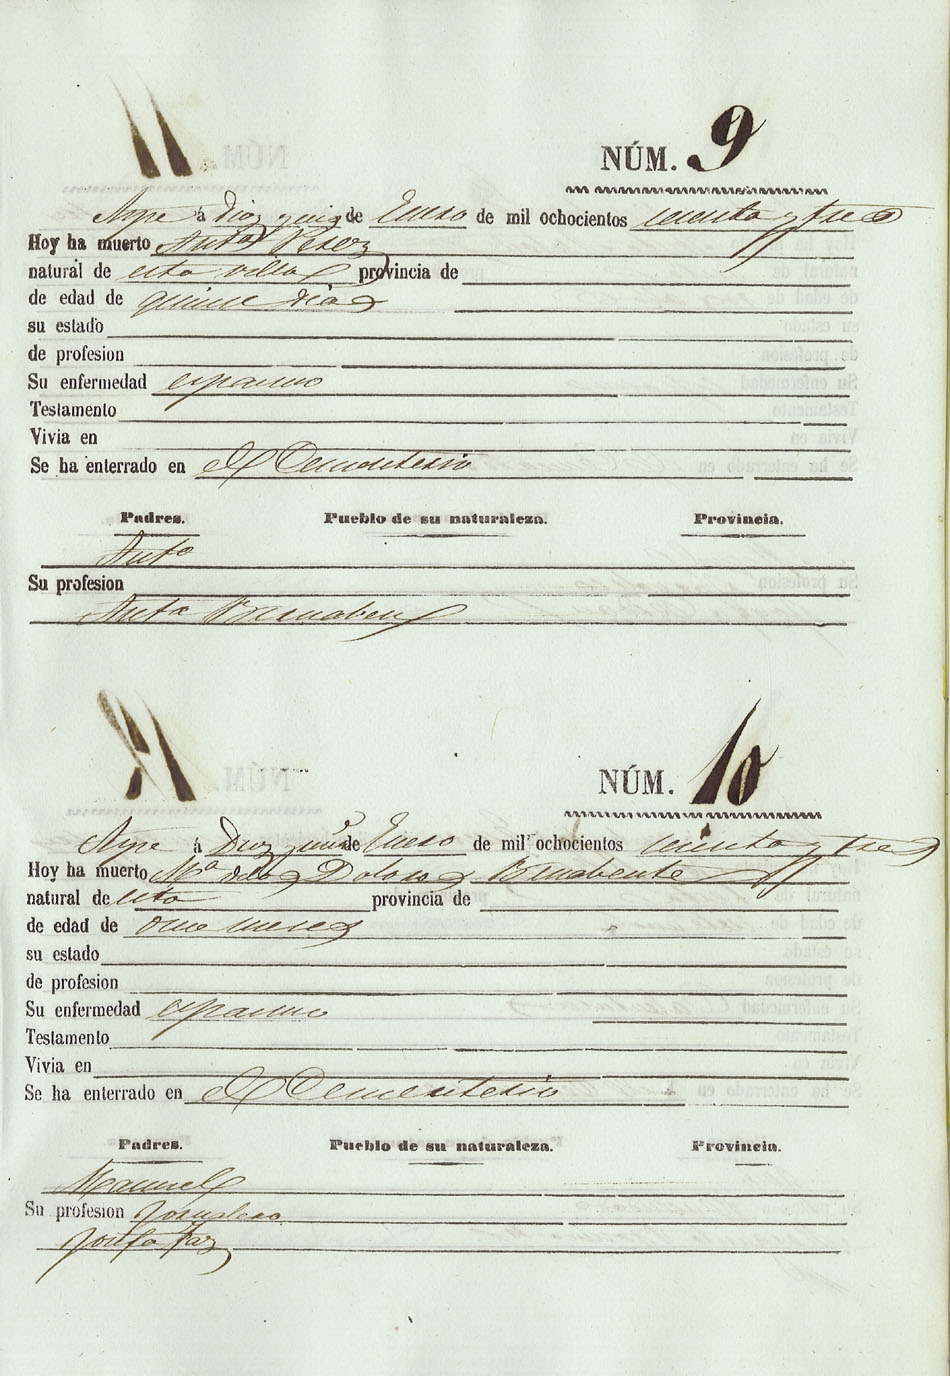 NÚM. 9
Aspe á Diez y seis de Enero de mil ochocientos cincuenta y tres
Hoy ha muerto Antº Perez
natural de esta villa provincia de
de edad de quince dias
su estado
de profesion
Su enfermedad espasmo
Testamento
Vivia en
Se ha enterrado en el Cementerio
Padres. Pueblo de su naturaleza. Provincia.
Antº
Su profesion
Antª
NÚM. 10
Aspe á Diez y seis de Enero de mil ochocientos cincuenta y tres
Hoy ha muerto Mª de los Dolores Benabente
natural de esta provincia de
de edad de once meses
su estado
de profesion
Su enfermedad espasmo
Testamento
Vivia en
Se ha enterrado en el Cementerio
Padres. Pueblo de su naturaleza. Provincia.
Manuel
Su profesion Jornalero
Josefa Paz